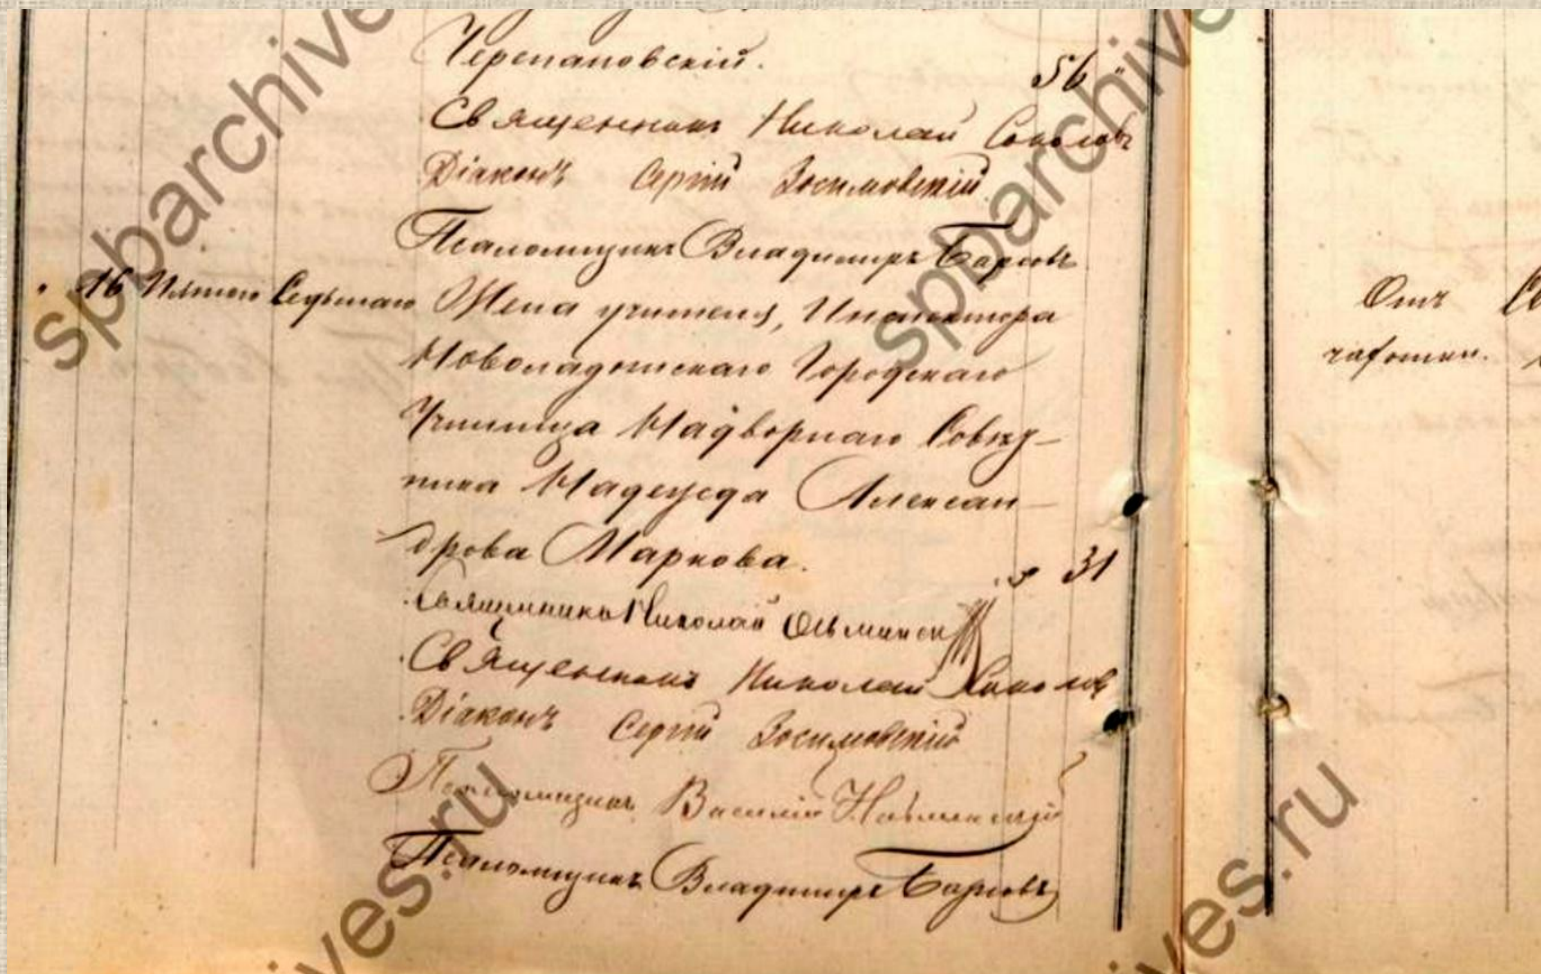 Черепановскій.
56 "
Священникъ Николай Соколовъ
Діаконъ Сергій Зосимовскій
Псаломщикъ Владимиръ Барсовъ
" 16 Пятаго Седьмаго Жена учителя, Инспектора
Новоладожскаго Городскаго
Училища Надворнаго Совѣт-
ника Надежда Алексан-
дрова Маркова.
" 31
Священникъ Николай
Священникъ Николай Соколовъ
Діаконъ Сергій Зосимовскій
Псаломщикъ Василій
Псаломщикъ Владимиръ Барсовъ
Отъ
чахотки.
spbarchives.ru
spbarchives.ru